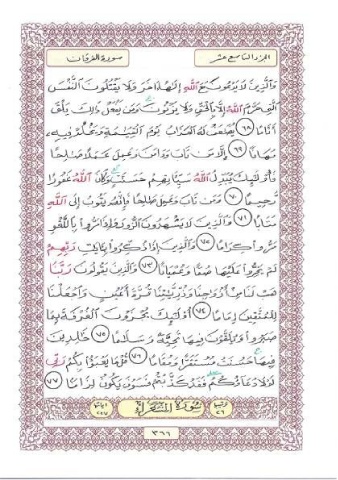 الجزء التاسع عشر
سورة الفرقان
وَالَّذِينَ لَا يَدْعُونَ مَعَ اللَّهِ إِلَٰهًا آخَرَ وَلَا يَقْتُلُونَ النَّفْسَ
الَّتِي حَرَّمَ اللَّهُ إِلَّا بِالْحَقِّ وَلَا يَزْنُونَ وَمَن يَفْعَلْ ذَٰلِكَ يَلْقَ
أَثَامًا ﴿٦٨﴾ يُضَاعَفْ لَهُ الْعَذَابُ يَوْمَ الْقِيَامَةِ وَيَخْلُدْ فِيهِ
مُهَانًا ﴿٦٩﴾ إِلَّا مَن تَابَ وَآمَنَ وَعَمِلَ عَمَلًا صَالِحًا
فَأُولَٰئِكَ يُبَدِّلُ اللَّهُ سَيِّئَاتِهِمْ حَسَنَاتٍ وَكَانَ اللَّهُ غَفُورًا
رَّحِيمًا ﴿٧٠﴾ وَمَن تَابَ وَعَمِلَ صَالِحًا فَإِنَّهُ يَتُوبُ إِلَى اللَّهِ
مَتَابًا ﴿٧١﴾ وَالَّذِينَ لَا يَشْهَدُونَ الزُّورَ وَإِذَا مَرُّوا بِاللَّغْوِ
مَرُّوا كِرَامًا ﴿٧٢﴾ وَالَّذِينَ إِذَا ذُكِّرُوا بِآيَاتِ رَبِّهِمْ
لَمْ يَخِرُّوا عَلَيْهَا صُمًّا وَعُمْيَانًا ﴿٧٣﴾ وَالَّذِينَ يَقُولُونَ رَبَّنَا
هَبْ لَنَا مِنْ أَزْوَاجِنَا وَذُرِّيَّاتِنَا قُرَّةَ أَعْيُنٍ وَاجْعَلْنَا
لِلْمُتَّقِينَ إِمَامًا ﴿٧٤﴾ أُولَٰئِكَ يُجْزَوْنَ الْغُرْفَةَ بِمَا
صَبَرُوا وَيُلَقَّوْنَ فِيهَا تَحِيَّةً وَسَلَامًا ﴿٧٥﴾ خَالِدِينَ
فِيهَا حَسُنَتْ مُسْتَقَرًّا وَمُقَامًا ﴿٧٦﴾ قُلْ مَا يَعْبَأُ بِكُمْ رَبِّي
لَوْلَا دُعَاؤُكُمْ فَقَدْ كَذَّبْتُمْ فَسَوْفَ يَكُونُ لِزَامًا ﴿٧٧﴾
ترتيبها ٢٦
سورة الشعراء
آياتها ٢٢٧
٣٦٦